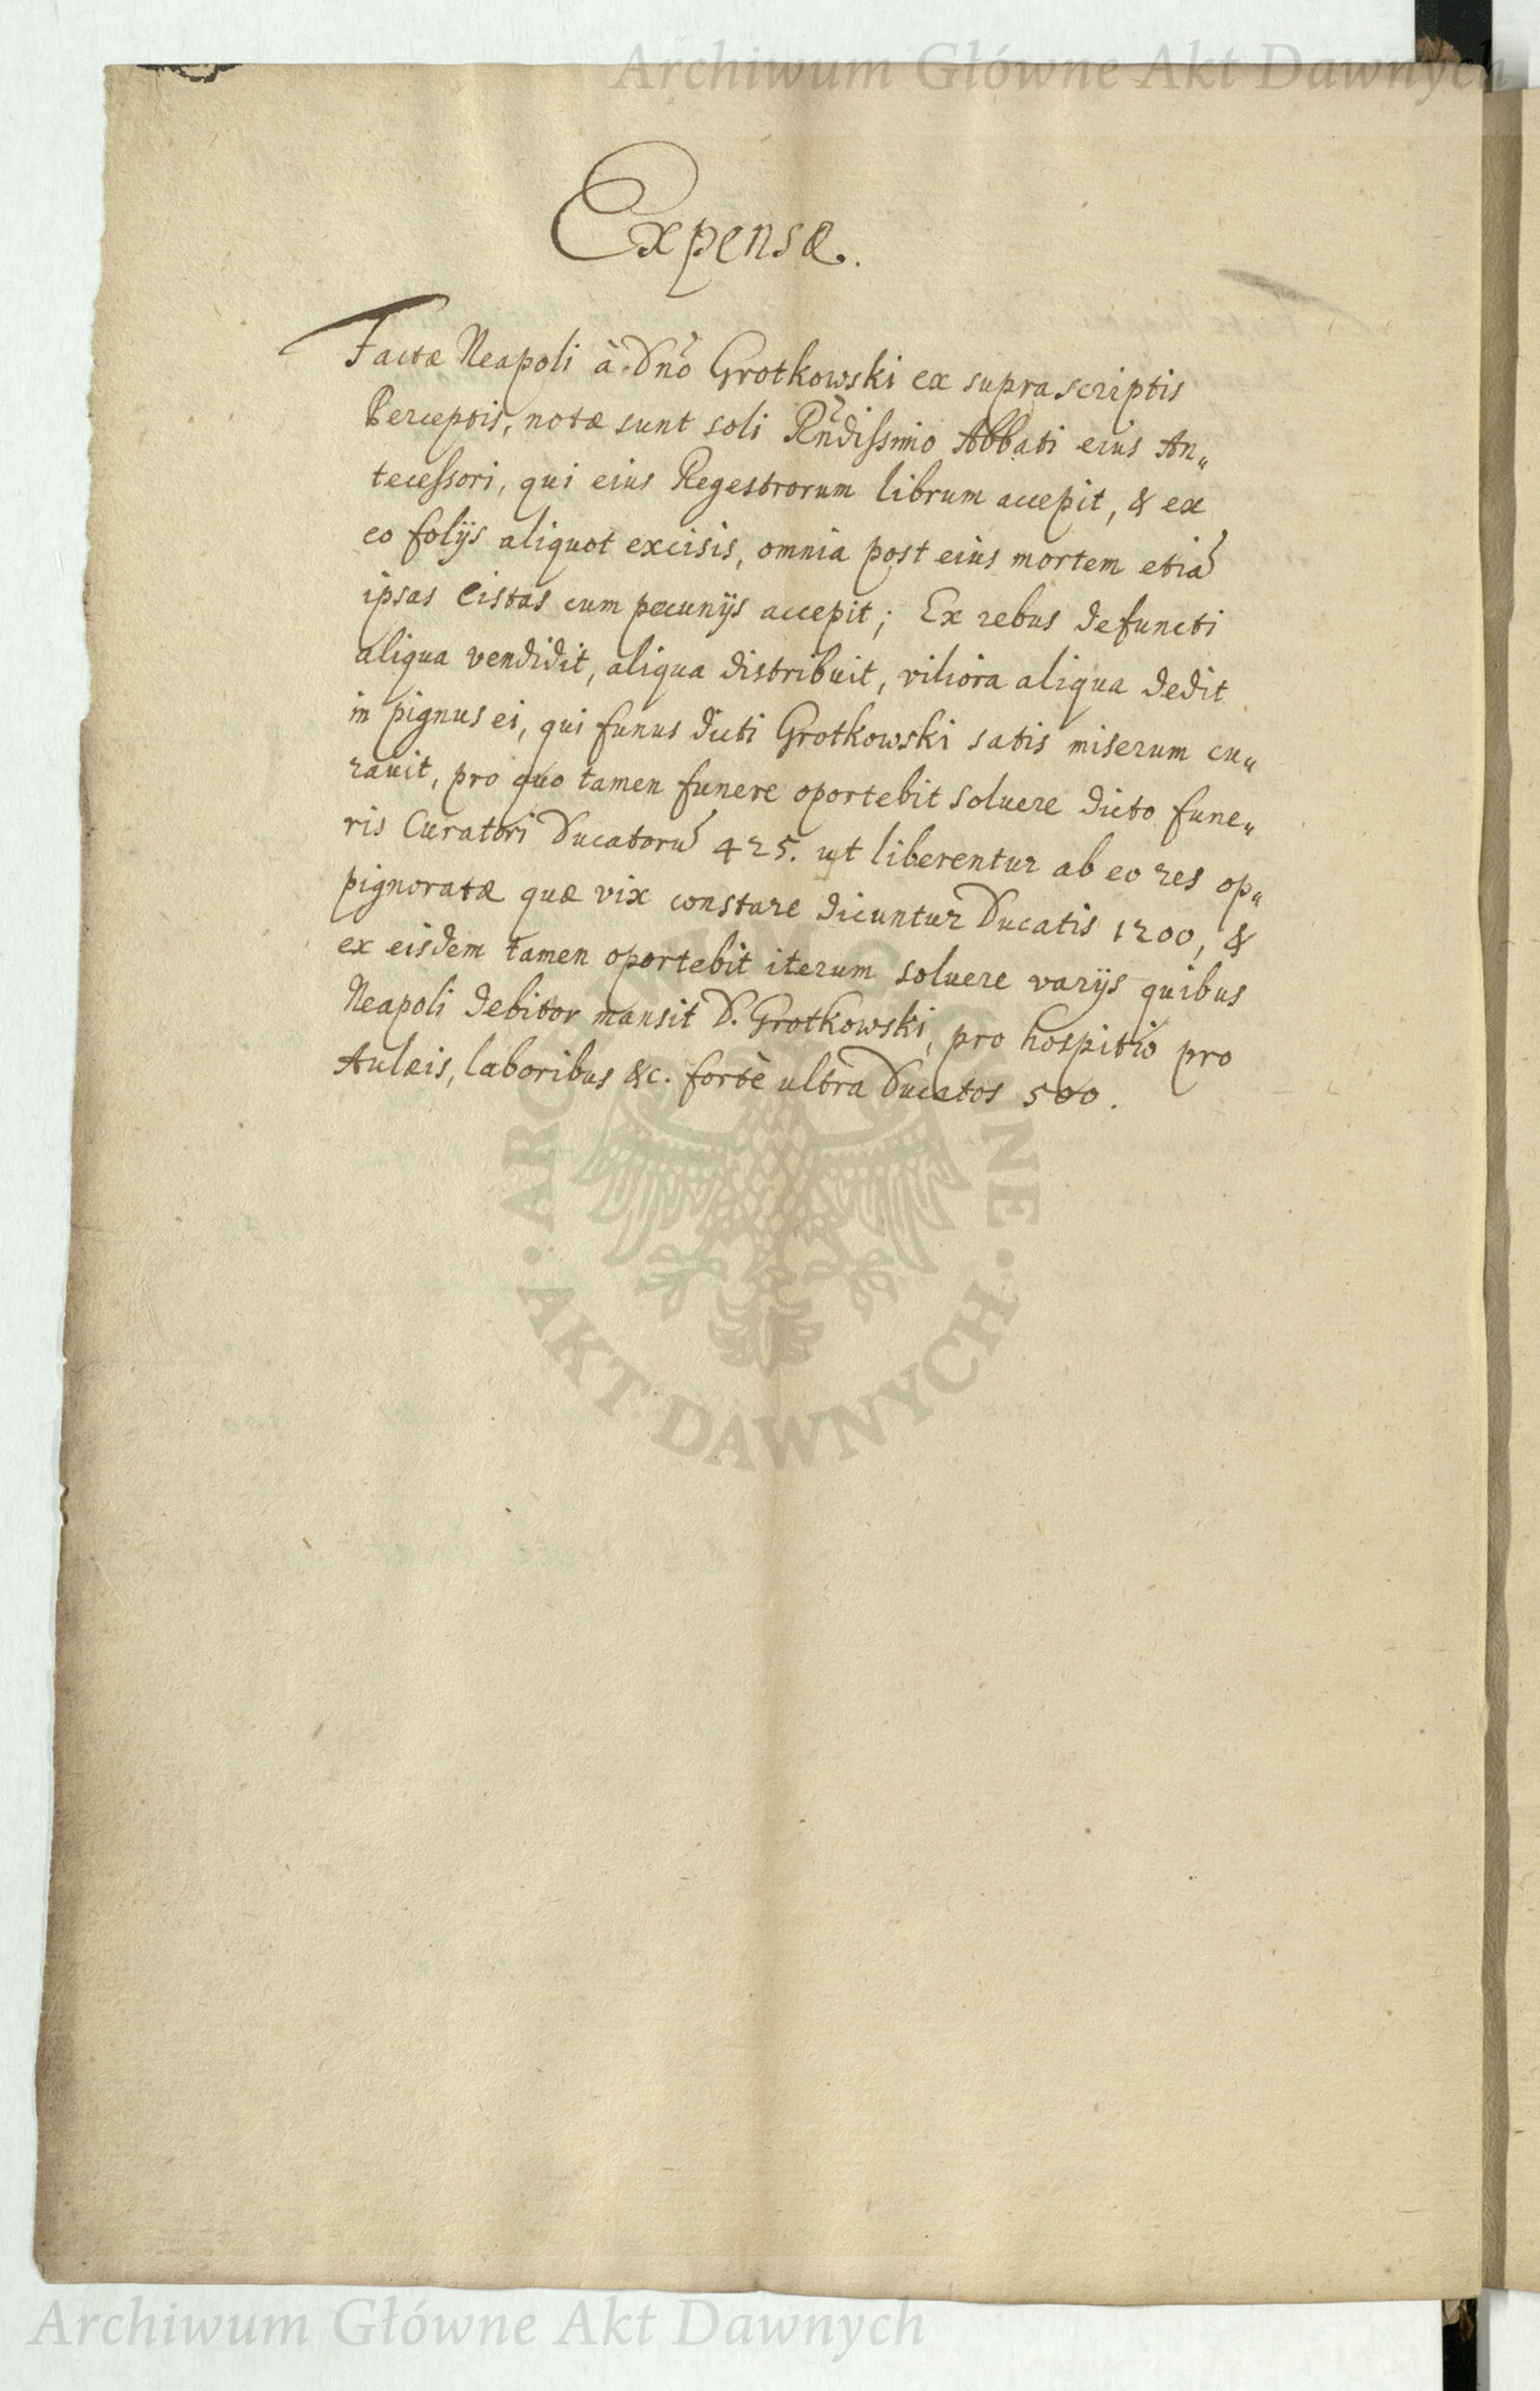 Archiwum Główne Akt Dawnych
Expensæ.
Factæ Neapoli à Dnō Grotkowski ex suprascriptis
Perceptis, notæ sunt soli Rñdissimo Abbati eius An„
tecessori, qui eius Regestrorum librum accepit, & ex
eo folijs aliquot excisis, omnia post eius mortem etiā
ipsas Cistas cum pecunijs accepit; Ex rebus defuncti
aliqua vendidit, aliqua distribuit, viliora aliqua dedit
in pignus ei, qui funus dicti Grotkowski satis miserum cu„
rauit, pro quo tamen funere oportebit soluere dicto fune„
ris Curatori Ducatorū 425. ut liberentur ab eo res op„
pignoratæ quæ vix constare dicuntur Ducatis 1200, &
ex eisdem tamen oportebit iterum soluere varijs quibus
Neapoli debitor mansit D. Grotkowski, pro hospitio pro
Aulæis, laboribus &c. fortè ultra Ducatos 500.
ARCHIWUM GŁÓWNE · AKT DAWNYCH ·
Archiwum Główne Akt Dawnych